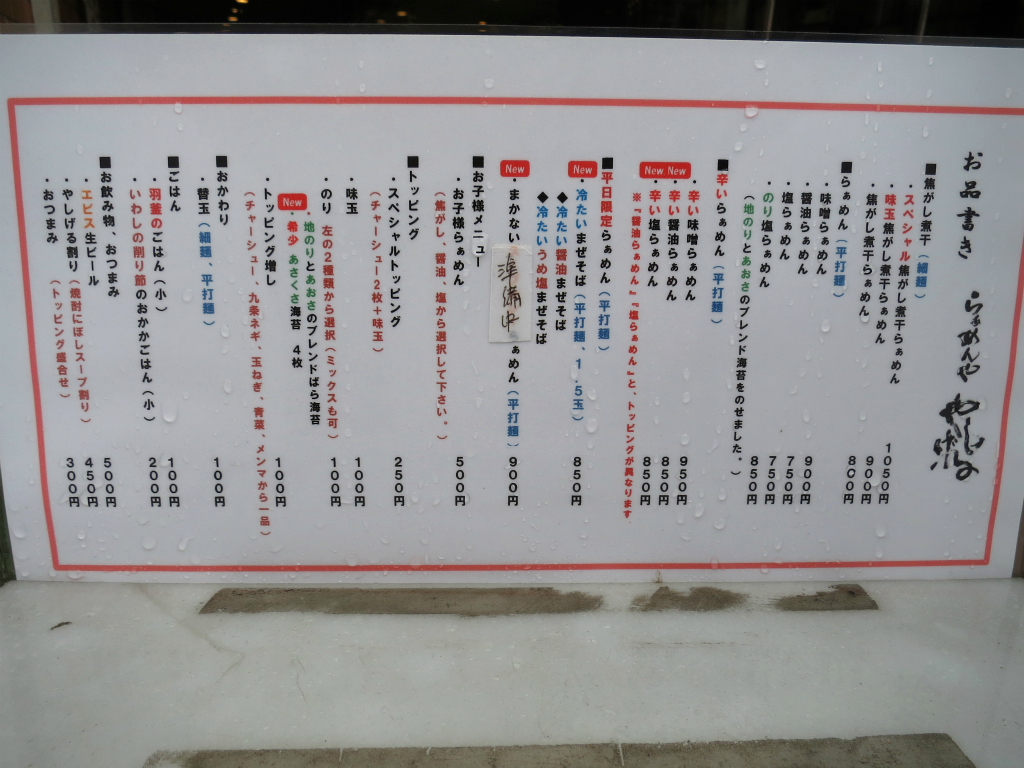 お品書き らぁめんや
■焦がし煮干（細麺）
・スペシャル焦がし煮干らぁめん 1050円
・味玉焦がし煮干らぁめん 900円
・焦がし煮干らぁめん 800円
■らぁめん（平打麺）
・味噌らぁめん 900円
・醤油らぁめん 750円
・塩らぁめん 750円
・のり塩らぁめん 850円
（地のりとあおさのブレンド海苔をのせました。）
■辛いらぁめん（平打麺）
New ・辛い味噌らぁめん 950円
New ・辛い塩らぁめん 850円
・辛い醤油らぁめん 850円
※『醤油らぁめん』『塩らぁめん』と、トッピングが異なります
■平日限定らぁめん（平打麺）
New ・冷たいまぜそば（平打麺、1.5玉） 850円
◆冷たい醤油まぜそば
◆冷たいうめ塩まぜそば
New ・まかない 準備中 ぁめん（平打麺） 900円
■お子様メニュー
・お子様らぁめん 500円
（焦がし、醤油、塩から選択して下さい。）
■トッピング
・スペシャルトッピング 250円
（チャーシュー2枚＋味玉）
・味玉 100円
・のり 左の2種類から選択（ミックスも可） 100円
・地のりとあおさのブレンドばら海苔
New ・希少 あさくさ海苔 4枚
・トッピング増し 100円
（チャーシュー、九条ネギ、玉ねぎ、青菜、メンマから一品）
■おかわり
・替玉（細麺、平打麺） 100円
■ごはん
・羽釜のごはん（小） 100円
・いわしの削り節のおかかごはん（小） 200円
■お飲み物、おつまみ
・エビス生ビール 500円
・やしげる割り（焼酎にぼしスープ割り） 450円
・おつまみ（トッピング盛合せ） 300円